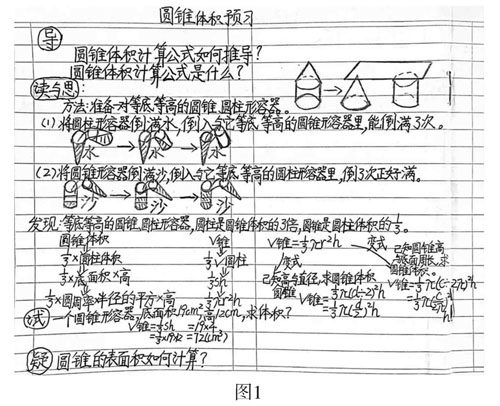 圆锥体积预习
导
圆锥体积计算公式如何推导?
圆锥体积计算公式是什么?
读与思:
方法:准备一对等底等高的圆锥、圆柱形容器。
(1)将圆柱形容器倒满水,倒入与它等底、等高的圆锥形容器里,能倒满3次。
水 水 水
(2)将圆锥形容器倒满沙,倒入与它等底、等高的圆柱形容器里,倒3次正好满。
沙 沙 沙
发现:等底等高的圆锥、圆柱形容器,圆柱是圆锥体积的3倍,圆锥是圆柱体积的1/3。
圆锥体积
1/3×圆柱体积
1/3×底面积×高
1/3×圆周率×半径的平方×高
V锥
1/3V圆柱
1/3sh
1/3πr²h
V锥=1/3πr²h
变式
已知高与直径,求圆锥体积
V锥=1/3π(d÷2)²h
=1/3π(d/2)²h
变式
已知圆锥高与底面周长,求圆锥体积。
V锥=1/3π(C÷2π)²h
=1/3π(C/2π)²h
试
一个圆锥形容器,底面积19cm²,高12cm,求体积?
V锥=1/3sh =19×4
=1/3×19×12 =72(cm³)
疑
圆锥的表面积如何计算?
图1